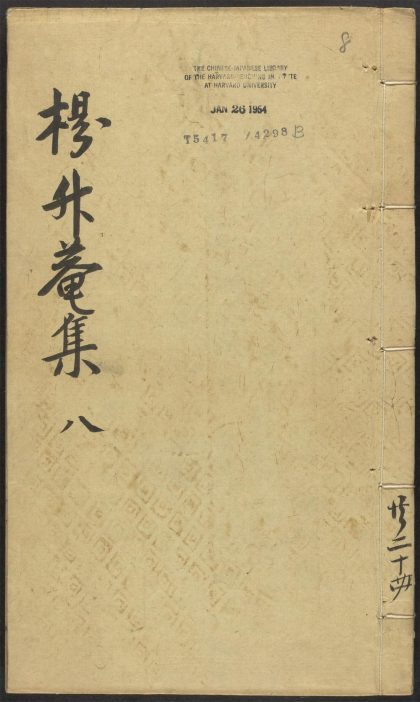 8
THE CHINESE-JAPANESE LIBRARY
OF THE HARVARD-YENCHING INSTITUTE
AT HARVARD UNIVERSITY
JAN 26 1954
T5417 /4298B
楊升菴集 八
共二十冊